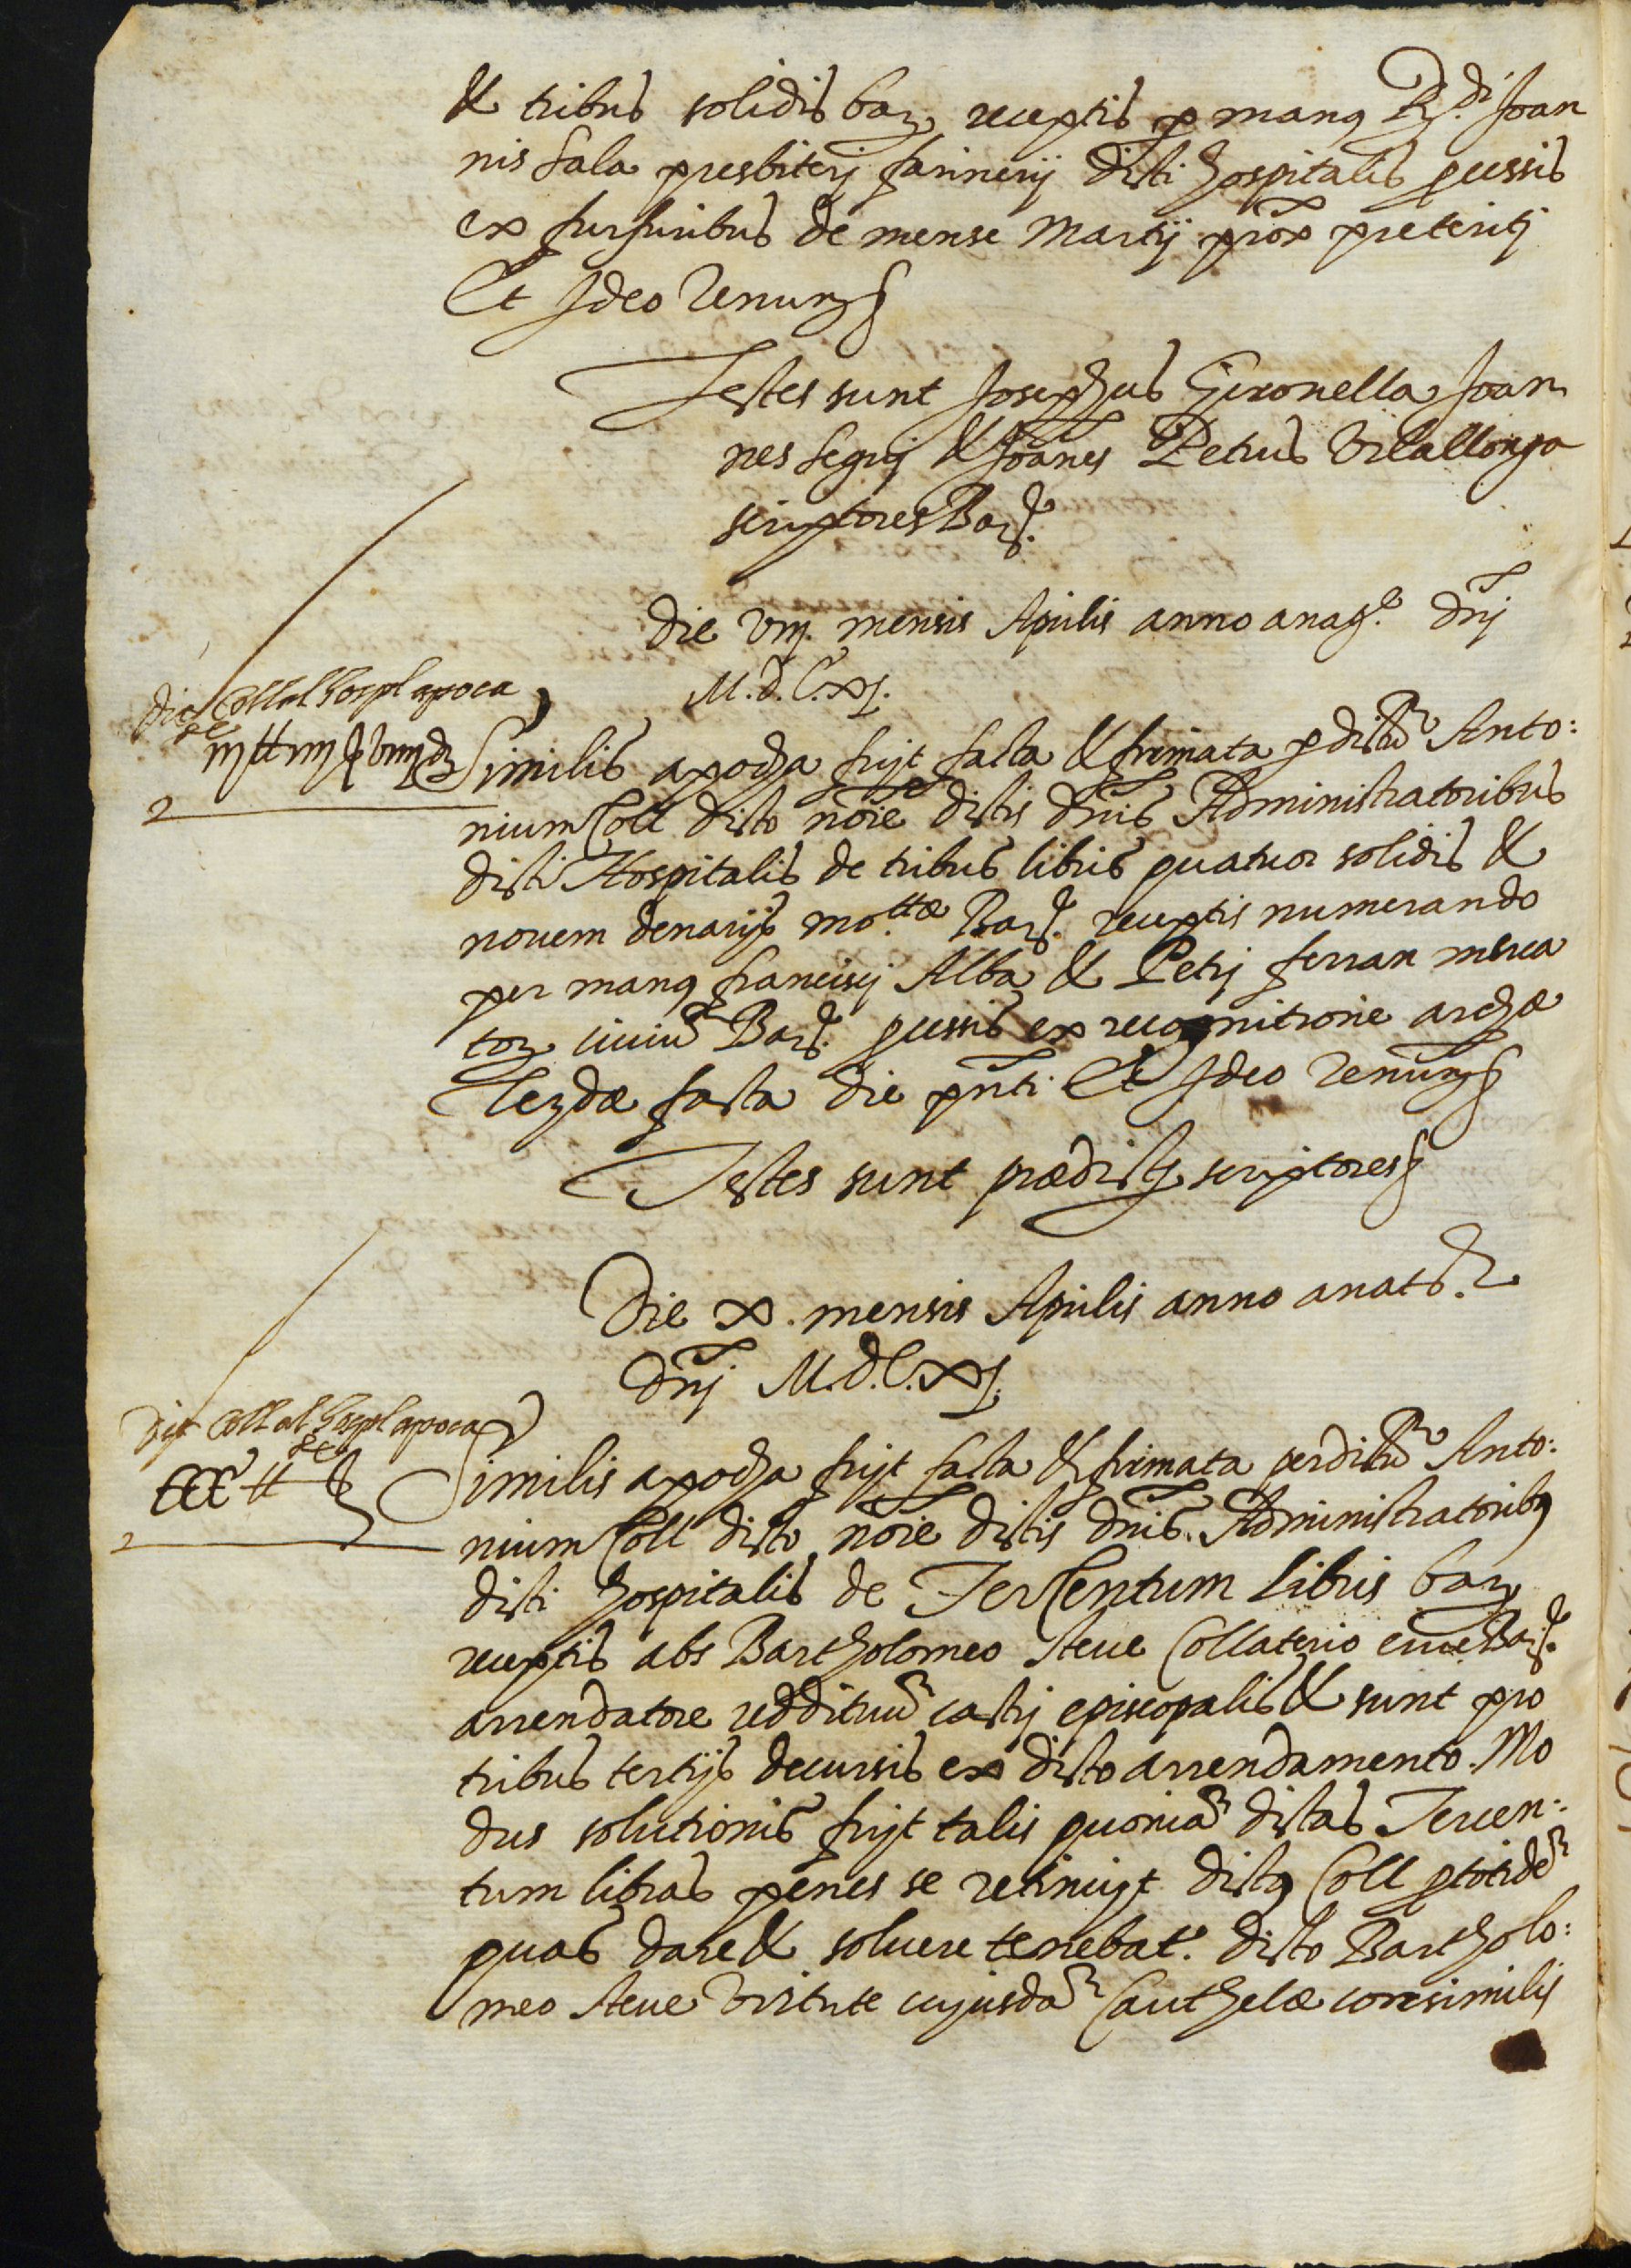 & tribus solidis bar. receptis p manus R.di Joan
nis Sala presbiterj farinerij dicti hospitalis p̱cessis
ex furfuribus de mense Martij prox̄ preteritj
Et Ideo Renun.
Testes sunt Josephus Gironella Joan
nes Seguj & Joānes Petrus Vilallonga
scriptores Bar.
Die viij. mensis Aprilis anno a nat. Dn̄j
M.d.C.xj.
dit Coll al hospl apoca
de
iij ll iiij s viiij d
Similis apocha fuyt facta & firmata p dictū Anto:
nium Coll dicto nōīe dictis dn̄is Administratoribus
dicti Hospitalis de tribus libris quatuor solidis &
novem denarijs mo.ttæ Bar. receptis numerando
per manus francisci Alba & Petrj ferran merca
tor. civiū Bar. p̱cessis ex recognitione archæ
lezdæ facta die pn̄ti Et Ideo Renun̄.
Testes sunt prædictj scriptores
Die x. mensis Aprilis anno a nat.
Dn̄j M.d.C.xj.
dit Coll al hospl apoca
de
CCC ll s
Similis apocha fuyt facta & firmata per dictū Anto:
nium Coll dicto nōīe dictis dn̄is Administratoribus
dicti hospitalis de TerCentum libris bar.
receptis abs Bartholomeo Steve Collaterio cive Bar.
arrendatore reddituū castrj episcopalis & sunt pro
tribus tertijs decursis ex dicto arrendamento. Mo
dus solutionis fuyt talis quoniā dictas Tercen:
tum libras penes se retinuyt dictus Coll p totidē
quas dare & solvere tenebat.r dicto Bartholo:
meo Steve virtute cujusdā Cauthelæ consimilis